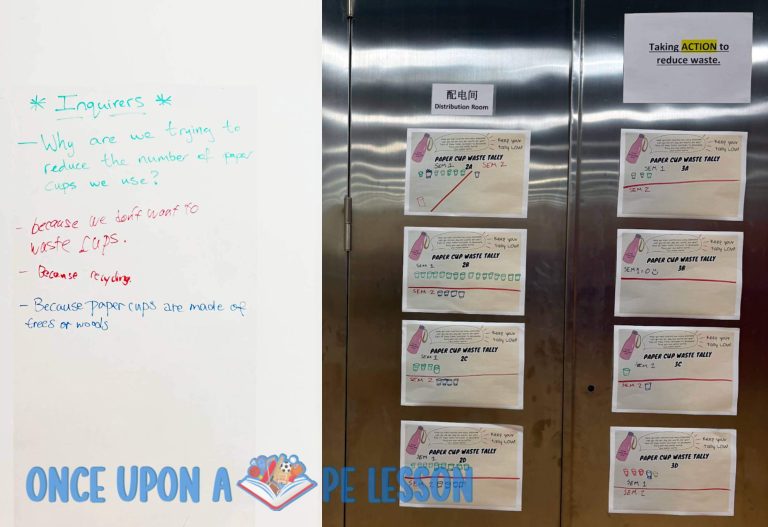 * Inquirers *
- Why are we trying to
reduce the number of paper
cups we use?
- because we don't want to
waste cups.
- Because recycling.
- Because paper cups are made of
trees or woods
配电间
Distribution Room
Taking ACTION to
reduce waste.
Keep your
Tally LOW!
PAPER CUP WASTE TALLY
SEM 1 2A SEM 2
Keep your
Tally LOW!
PAPER CUP WASTE TALLY
SEM 1 2B
SEM 2
Keep your
Tally LOW!
PAPER CUP WASTE TALLY
SEM 1 2C
SEM 2
Keep your
Tally LOW!
PAPER CUP WASTE TALLY
SEM 1 2D
SEM 2
Keep your
Tally LOW!
PAPER CUP WASTE TALLY
SEM 1 3A
SEM 2
Keep your
Tally LOW!
PAPER CUP WASTE TALLY
SEM 1 - 0 3B
Keep your
Tally LOW!
PAPER CUP WASTE TALLY
SEM 1 3C
SEM 2
Keep your
Tally LOW!
PAPER CUP WASTE TALLY
3D
SEM 1
SEM 2
ONCE UPON A PE LESSON